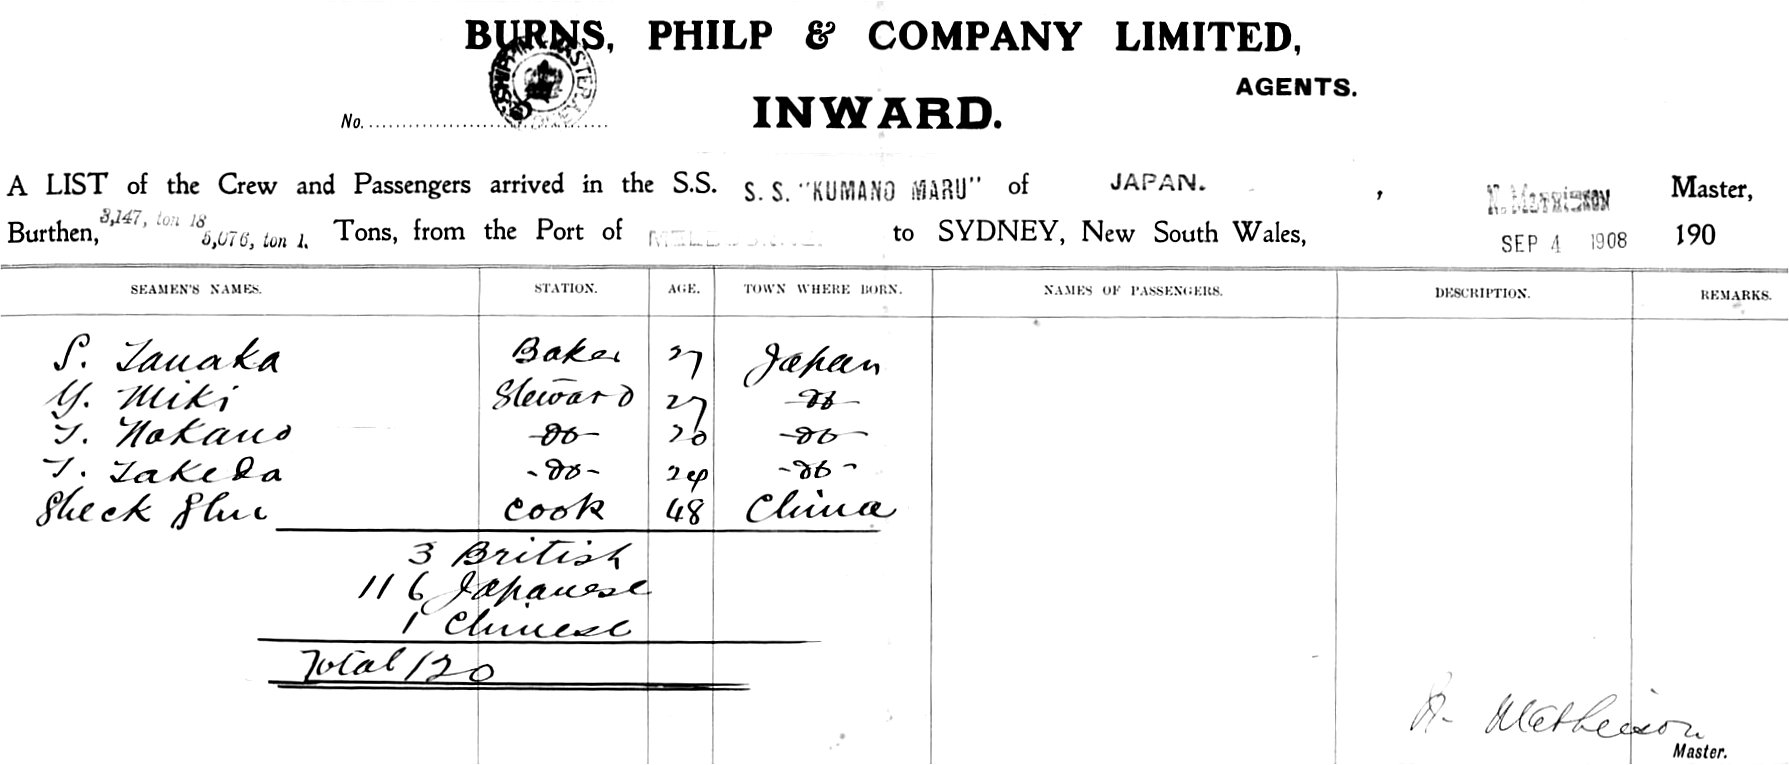 BURNS, PHILP & COMPANY LIMITED,
AGENTS.
No.
INWARD.
A LIST of the Crew and Passengers arrived in the S.S. S.S. "KUMANO MARU" of JAPAN. , Master,
Burthen, 3,147, ton 18 5,076, ton 1. Tons, from the Port of MELBOURNE. to SYDNEY, New South Wales, SEP 4 1908 190
SEAMEN'S NAMES. STATION. AGE. TOWN WHERE BORN. NAMES OF PASSENGERS. DESCRIPTION. REMARKS.
S. Tanaka Baker 27 Japan
Y. Miki Steward 27 -do-
T. Nakano -do- 20 -do-
T. Takeda -do- 24 -do-
Sheck Shu Cook 48 China
3 British
116 Japanese
1 Chinese
Total 120
Matheison
Master.